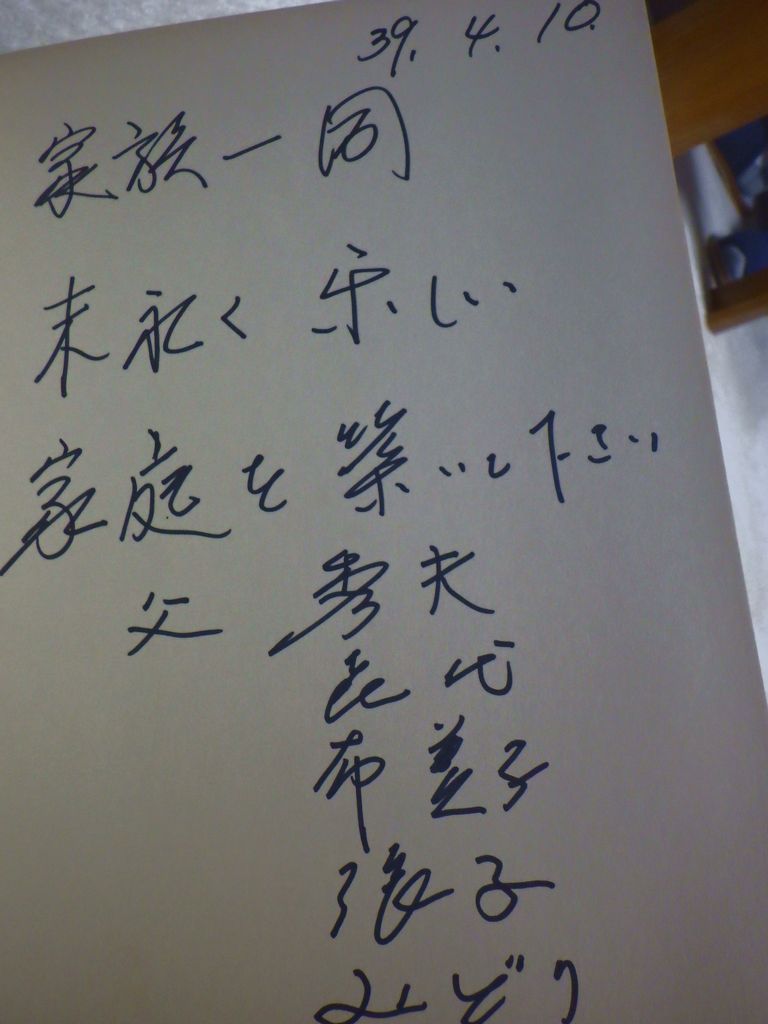 39. 4. 10.
家族一同
末永く楽しい
家庭を築いて下さい
父 秀夫
代
布美子
張子
みどり